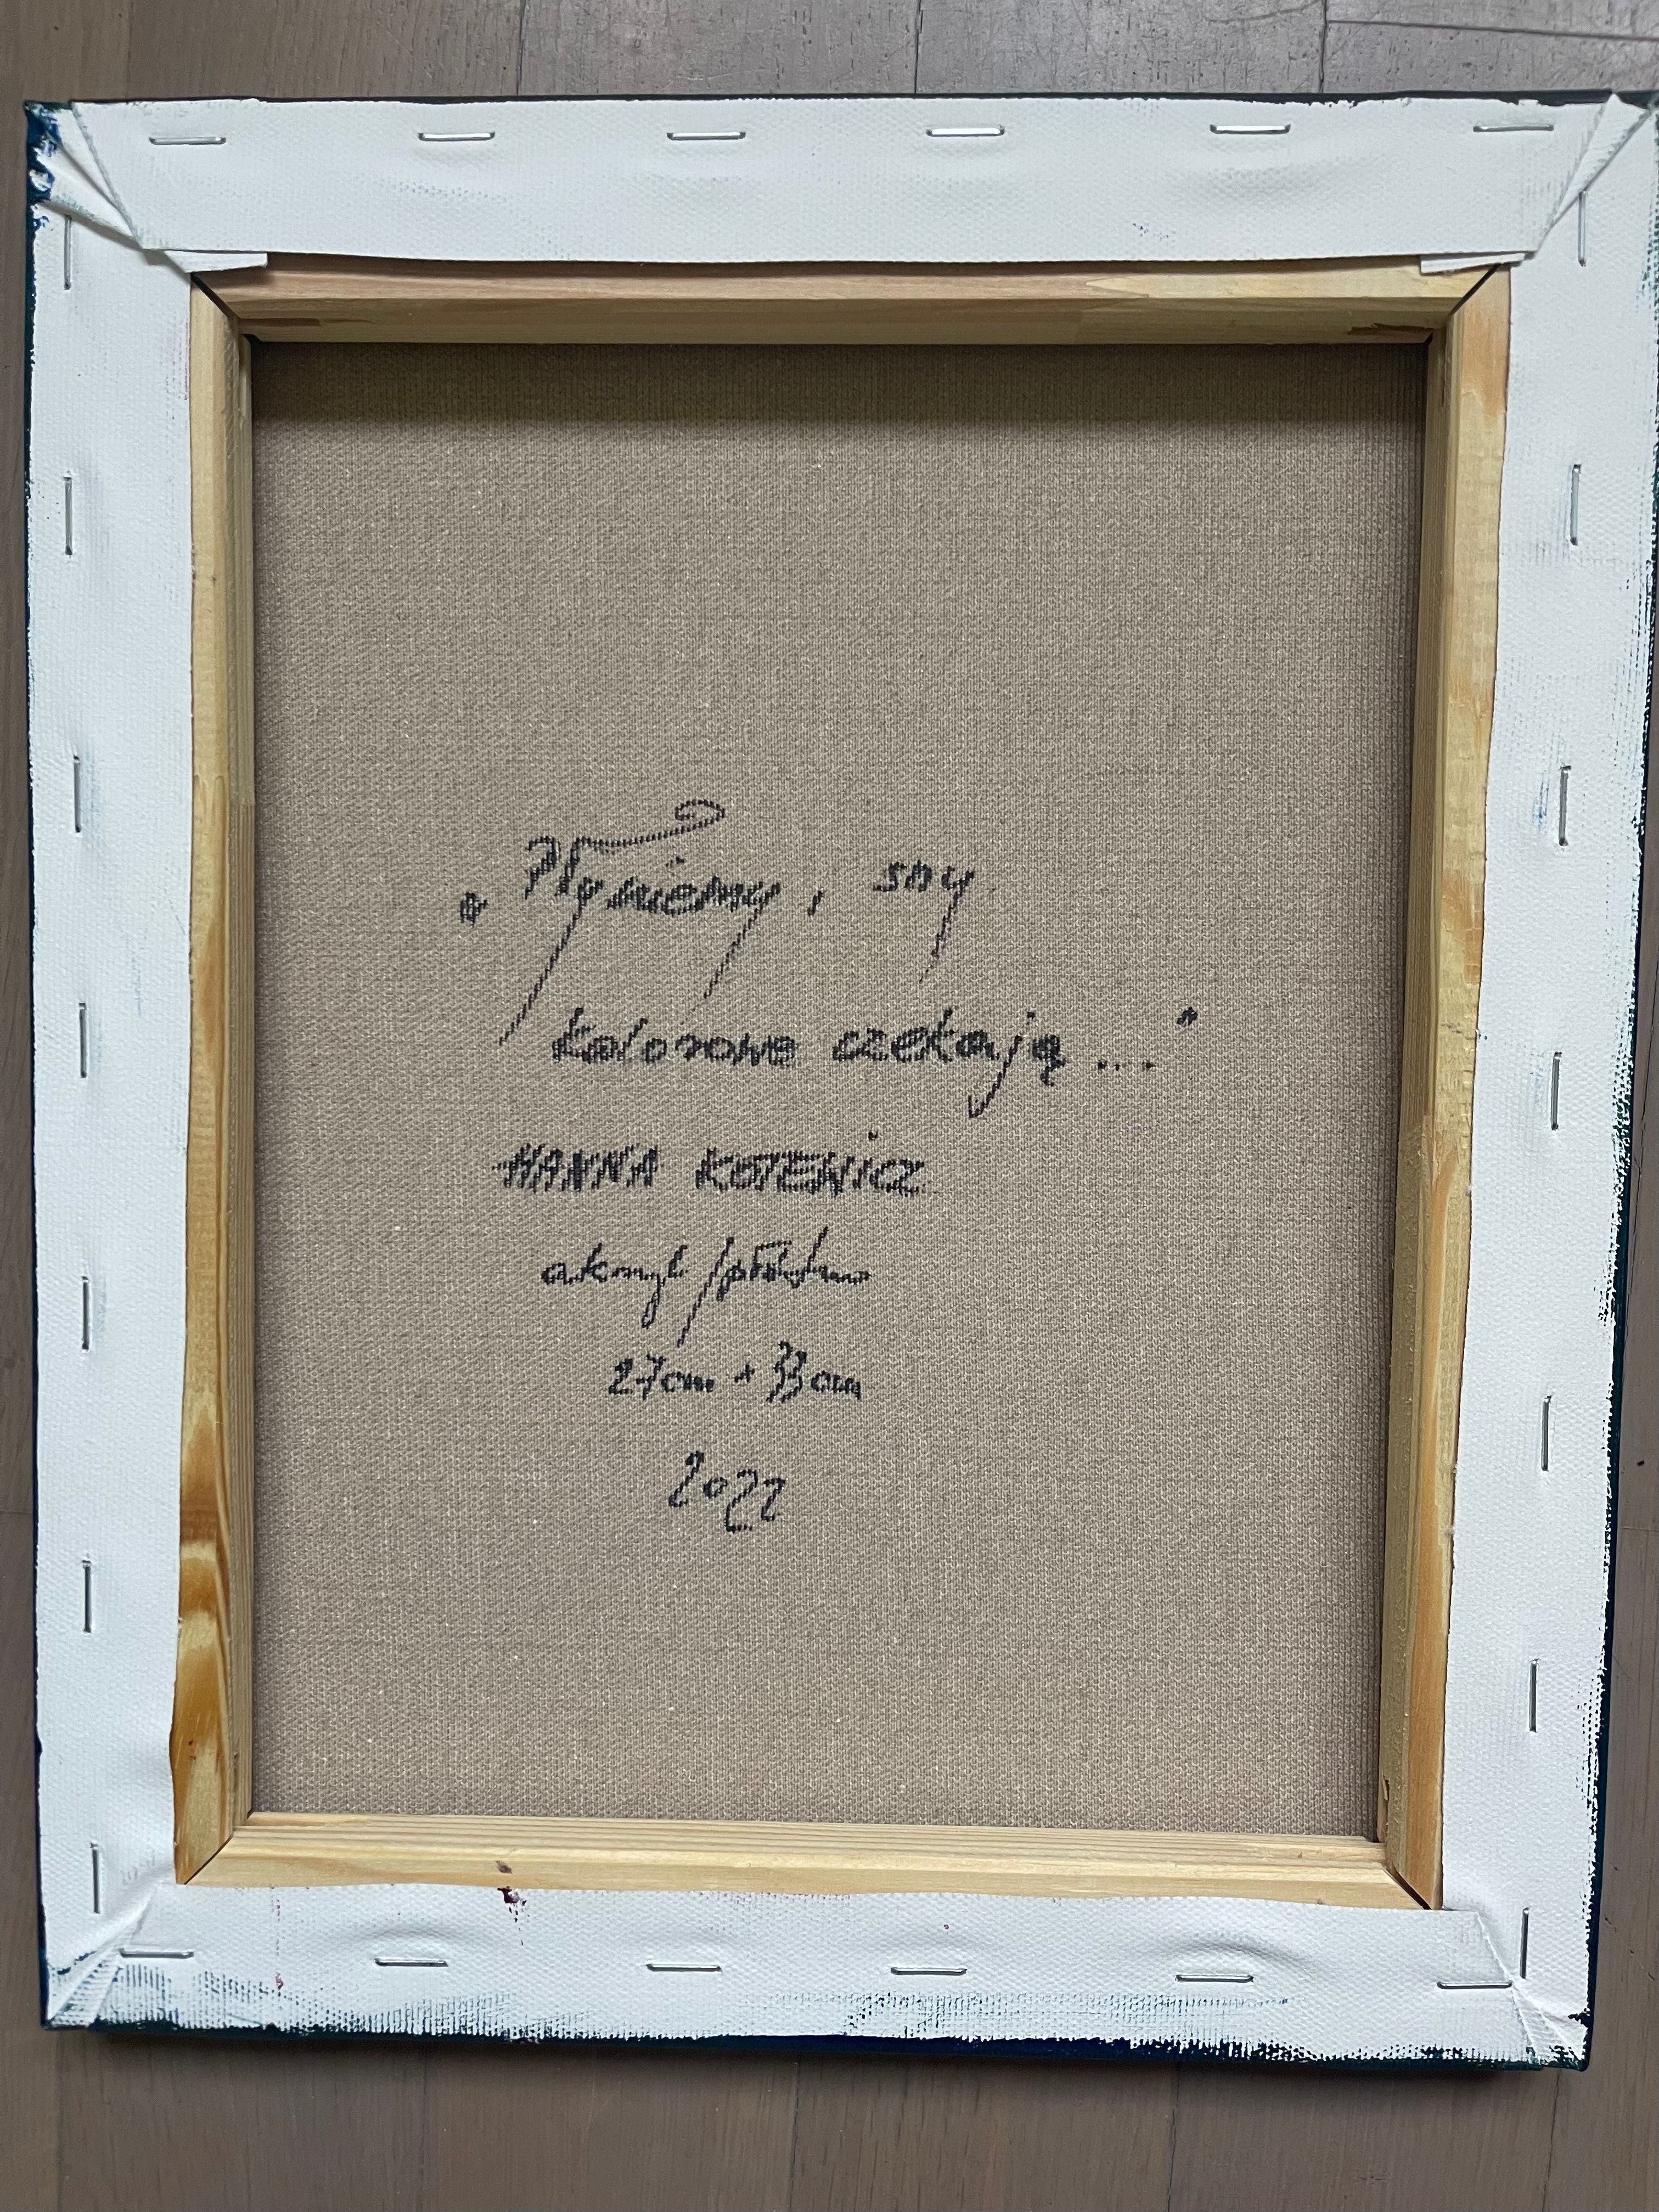 „Płyniemy, sny
kolorowe czekają..."
HANNA KOTEWICZ
akryl/płótno
27cm x 33cm
2022